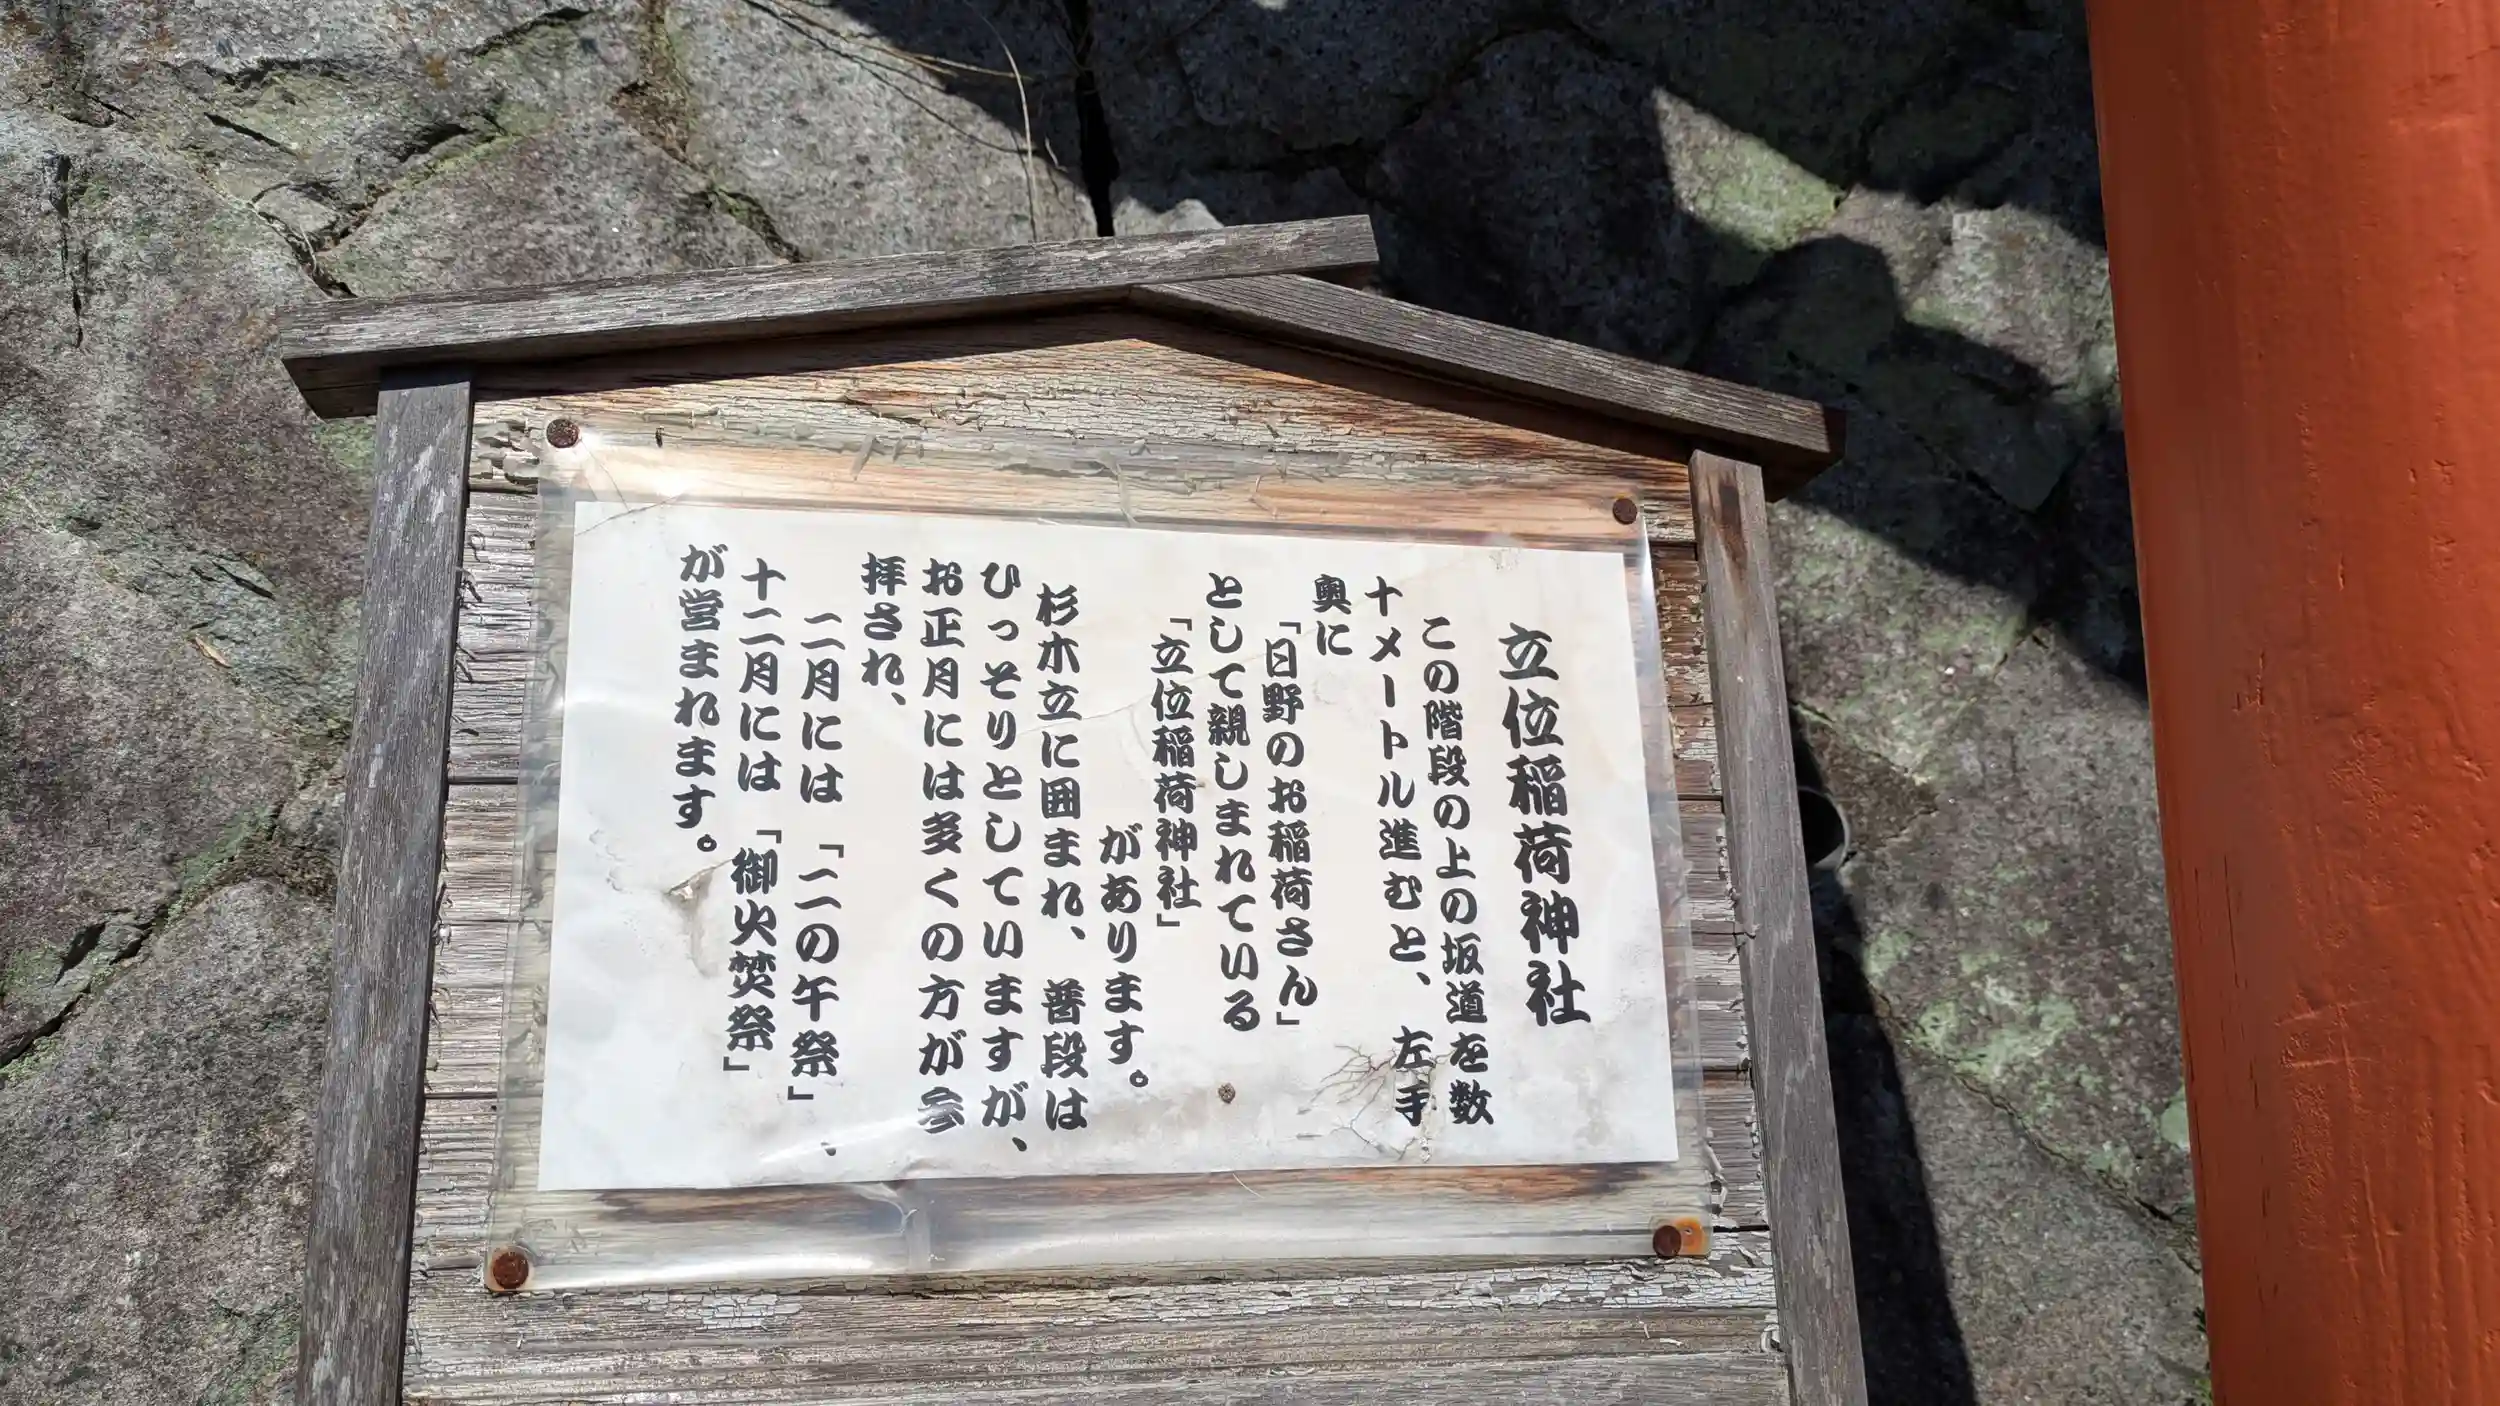 立位稲荷神社
この階段の上の坂道を数
十メートル進むと、左手
奥に
「日野のお稲荷さん」
として親しまれている
「立位稲荷神社」
があります。
杉木立に囲まれ、普段は
ひっそりとしていますが、
お正月には多くの方が参
拝され、
二月には「二の午祭」、
十二月には「御火焚祭」
が営まれます。